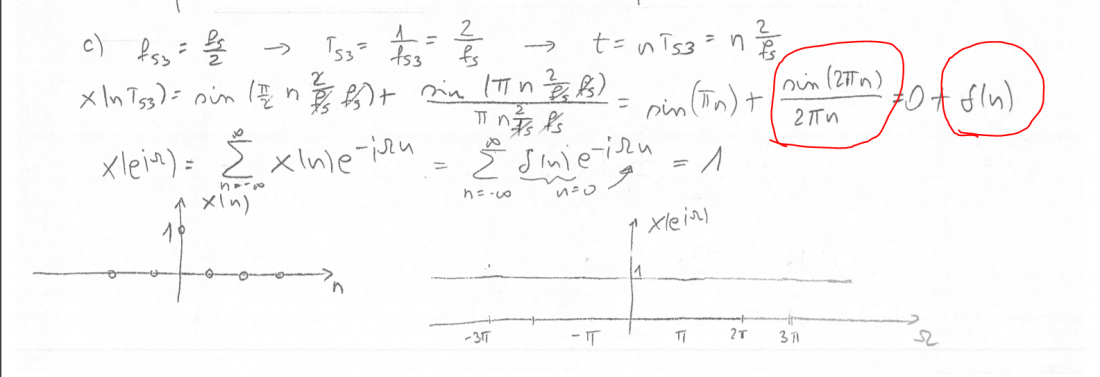 c) fs3 = fs/2 → Ts3 = 1/fs3 = 2/fs → t = nTs3 = n 2/fs
x(nTs3) = sin(π/2 n 2/fs fs) + sin(π n 2/fs fs)/(π n 2/fs fs) = sin(πn) + sin(2πn)/(2πn) = 0 + δ(n)
X(e^iΩ) = ∑_{n=-∞}^{∞} x(n)e^{-iΩn} = ∑_{n=-∞}^{∞} δ(n)e^{-iΩn} = 1
n=0
x(n) X(e^iΩ)
1 1
n
-3π -π π 2π 3π Ω